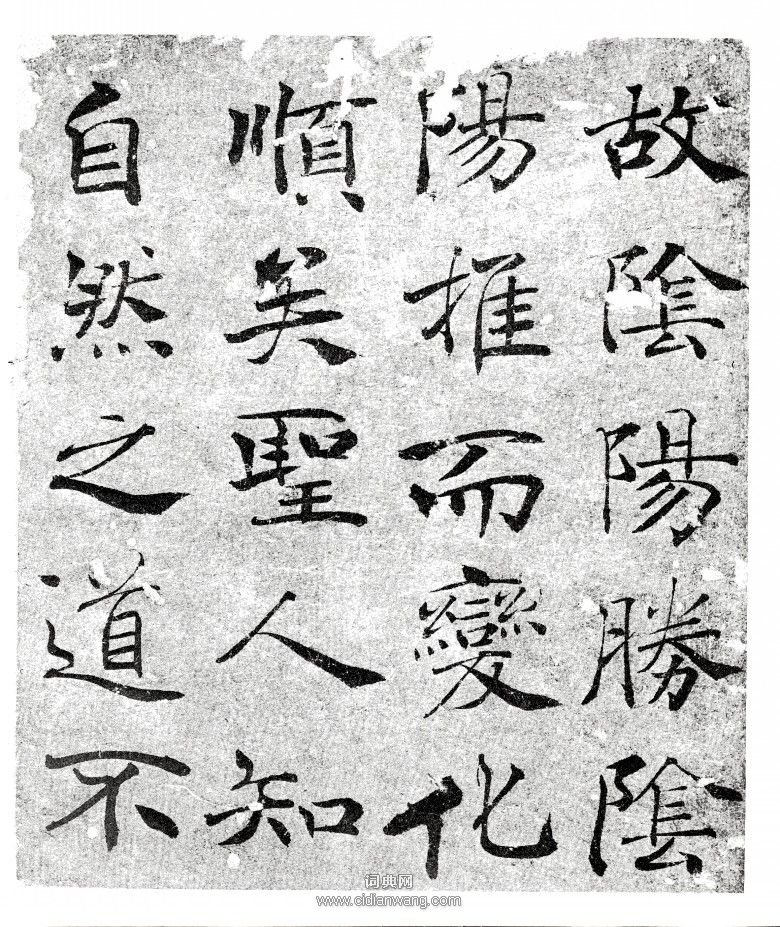 故陰陽勝陰
陽推而變化
順矣聖人知
自然之道不
词典网
www.cidianwang.com